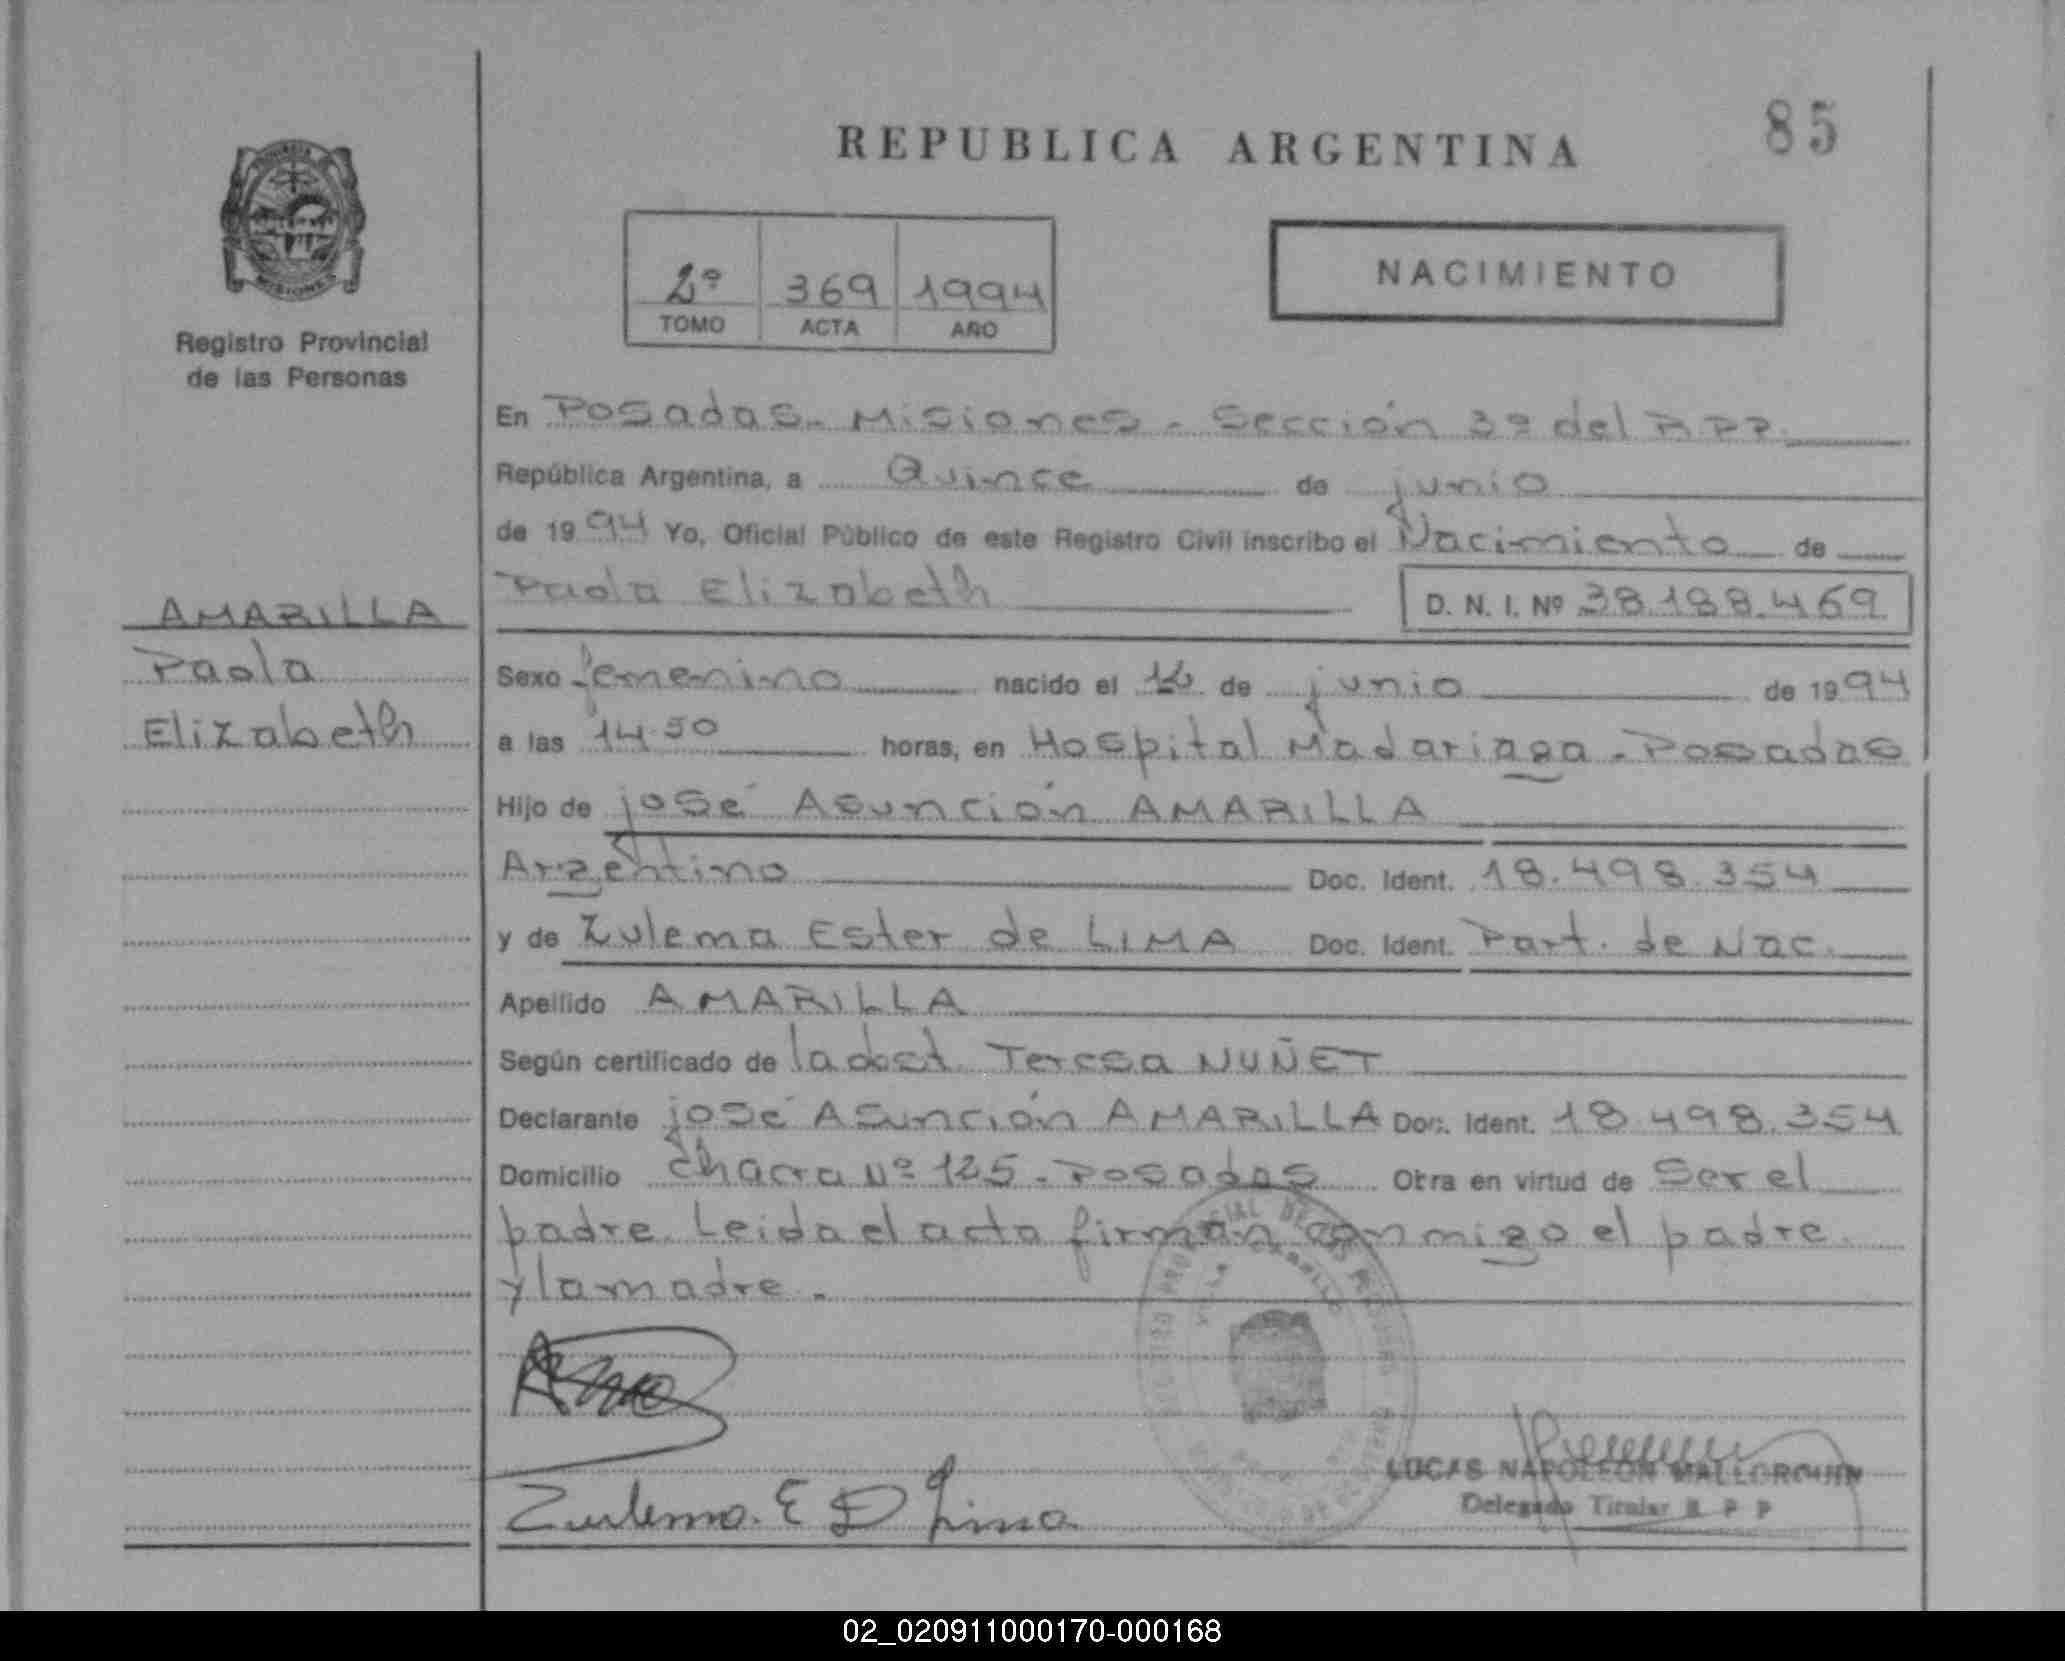 REPUBLICA ARGENTINA
85
2º 369 1994
TOMO ACTA AÑO
NACIMIENTO
Registro Provincial
de las Personas
AMARILLA
Paola
Elizabeth
En Posadas. Misiones - Sección 3º del RPP.
República Argentina, a Quince de junio
de 1994 Yo, Oficial Público de este Registro Civil inscribo el Nacimiento de
Paola Elizabeth D. N. I. Nº 38.188.469
Sexo femenino nacido el de junio de 1994
a las 14.50 horas, en Hospital Madariaga - Posadas
Hijo de josé Asunción AMARILLA
Argentino Doc. Ident. 18.498.354
y de Zulema Ester de LIMA Doc. Ident. Part. de Nac.
Apellido AMARILLA
Según certificado de la obst. Teresa NUÑET
Declarante josé Asunción AMARILLA Doc. Ident. 18.498.354
Domicilio chacra Nº 125 - Posadas Obra en virtud de Ser el
padre. Leida el acta firman conmigo el padre
y la madre.
Zulema. E D Lima
LUCAS NAPOLEON MALLORQUIN
Delegado Titular R P P
02_020911000170-000168